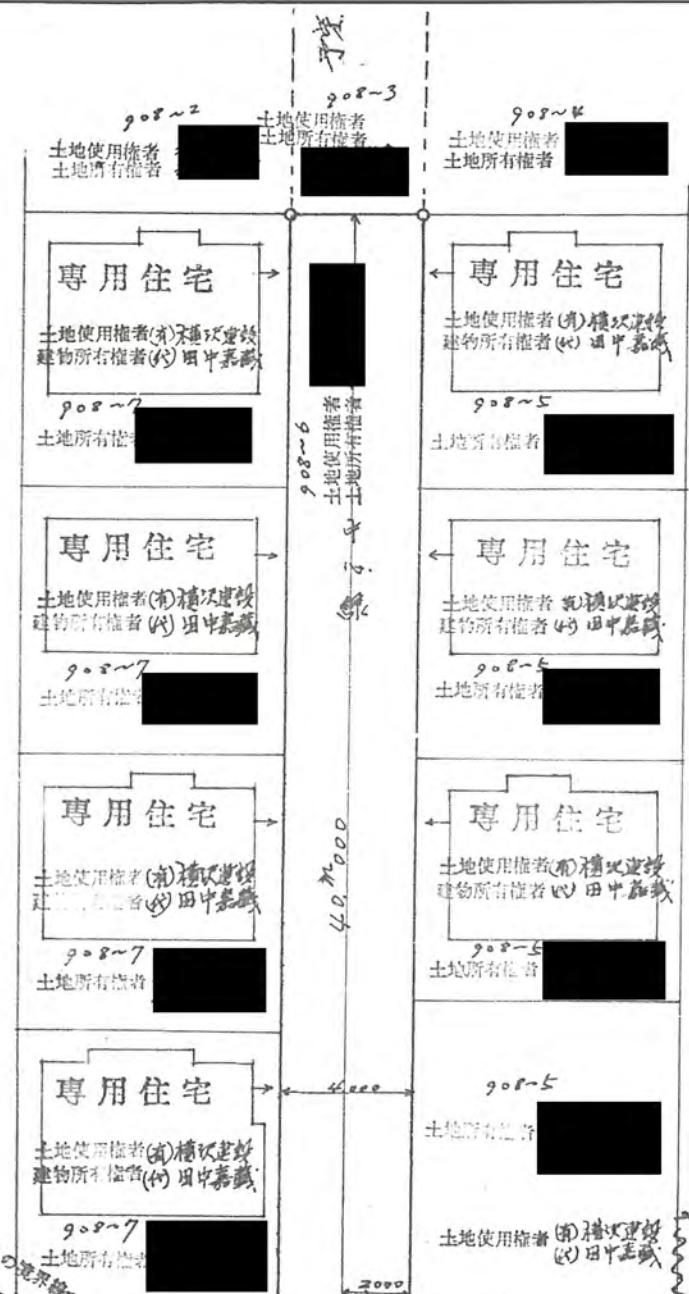 予定
908~2
土地使用権者
土地所有権者
908~3
土地使用権者
土地所有権者
908~4
土地使用権者
土地所有権者
専用住宅
土地使用権者(有)横沢建設
建物所有権者(代)田中嘉蔵
908~7
土地所有権者
908~6
土地使用権者
土地所有権者
専用住宅
土地使用権者(有)横沢建設
建物所有権者(代)田中嘉蔵
908~5
土地所有権者
専用住宅
土地使用権者(有)横沢建設
建物所有権者(代)田中嘉蔵
908~7
土地所有権者
専用住宅
土地使用権者(有)横沢建設
建物所有権者(代)田中嘉蔵
908~5
土地所有権者
40.m000
専用住宅
土地使用権者(有)横沢建設
建物所有権者(代)田中嘉蔵
908~7
土地所有権者
専用住宅
土地使用権者(有)横沢建設
建物所有権者(代)田中嘉蔵
908~5
土地所有権者
専用住宅
土地使用権者(有)横沢建設
建物所有権者(代)田中嘉蔵
908~7
土地所有権者
4.000
908~5
土地所有権者
土地使用権者(有)横沢建設
(代)田中嘉蔵
2000
の境界線